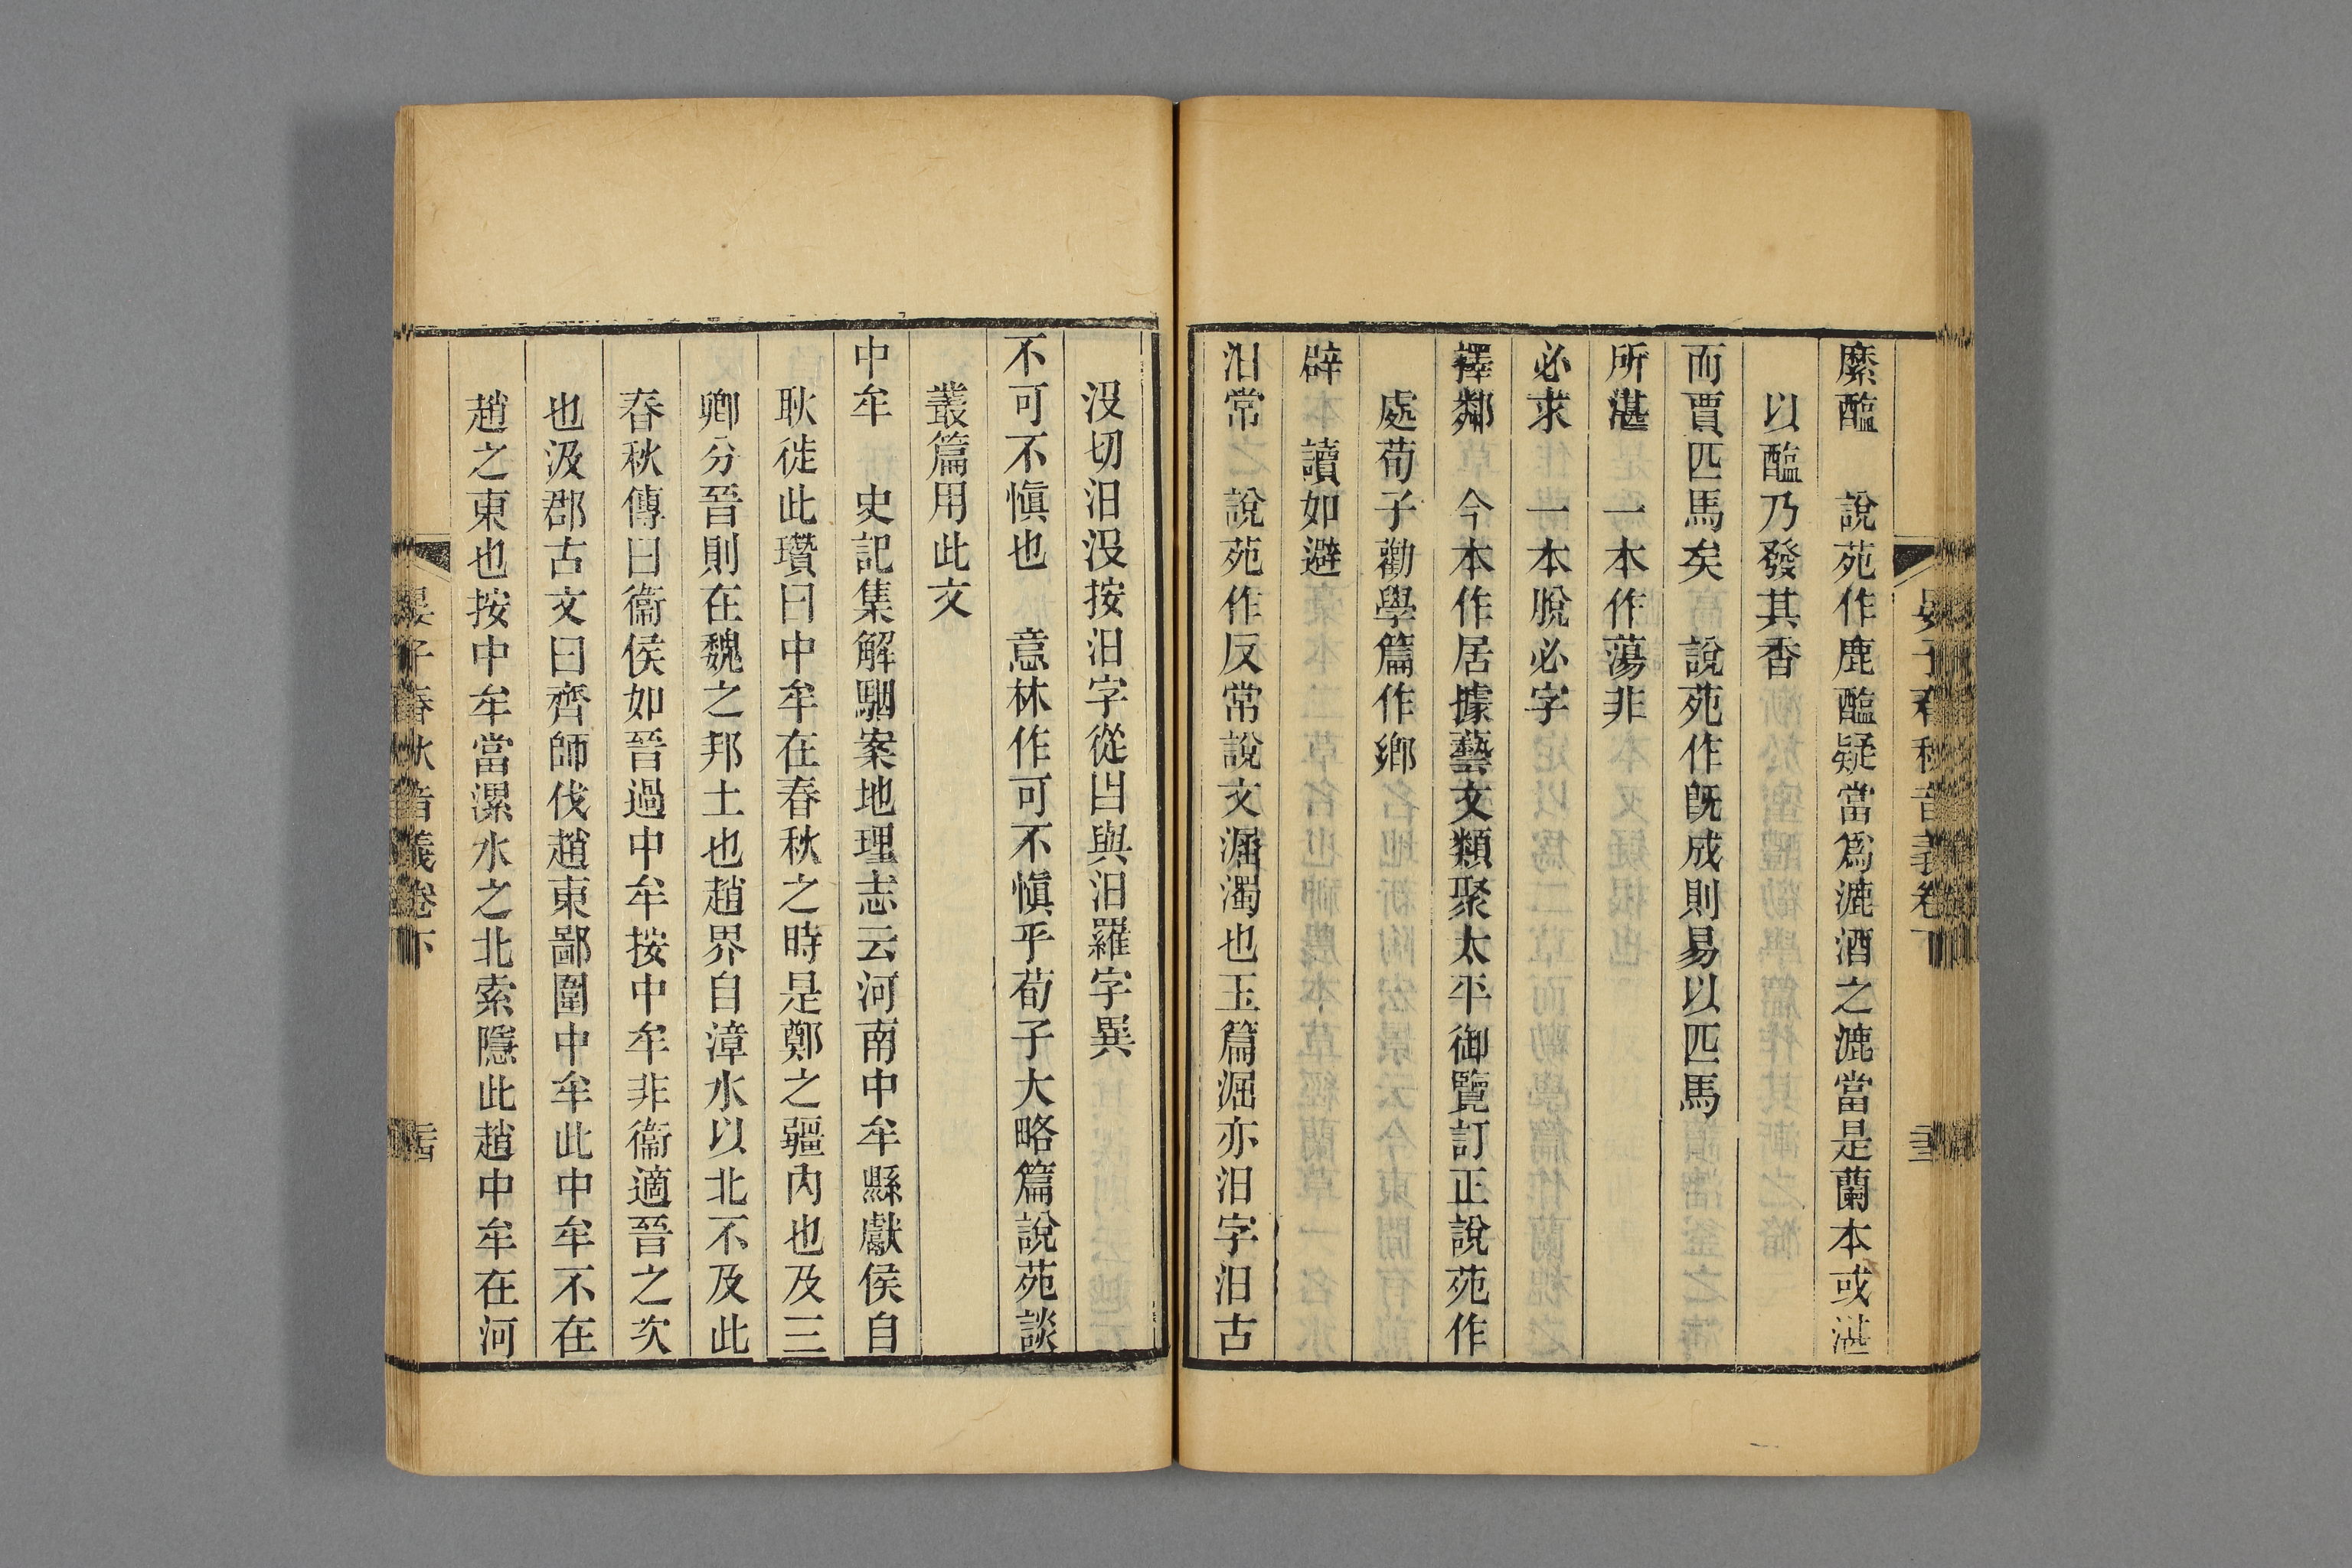 晏子春秋音義卷下
麋醢　說苑作鹿醢疑當爲漉酒之漉當是蘭本或湛
以醢乃發其香
而賈匹馬矣　說苑作旣成則易以匹馬
所湛　一本作蕩非
必求　一本脫必字
擇鄰　今本作居據藝文類聚太平御覽訂正說苑作
處荀子勸學篇作鄉
辟　讀如避
汨常　說苑作反常說文淈濁也玉篇淈亦汨字汨古
沒切汨沒按汨字從㠯與汨羅字異
不可不愼也　意林作可不愼乎荀子大略篇說苑談
叢篇用此文
中牟　史記集解駰案地理志云河南中牟縣獻侯自
耿徙此瓚曰中牟在春秋之時是鄭之疆內也及三
卿分晉則在魏之邦土也趙界自漳水以北不及此
春秋傳曰衞侯如晉過中牟按中牟非衞適晉之次
也汲郡古文曰齊師伐趙東鄙圍中牟此中牟不在
趙之東也按中牟當漯水之北索隱此趙中牟在河
晏子春秋音義卷下